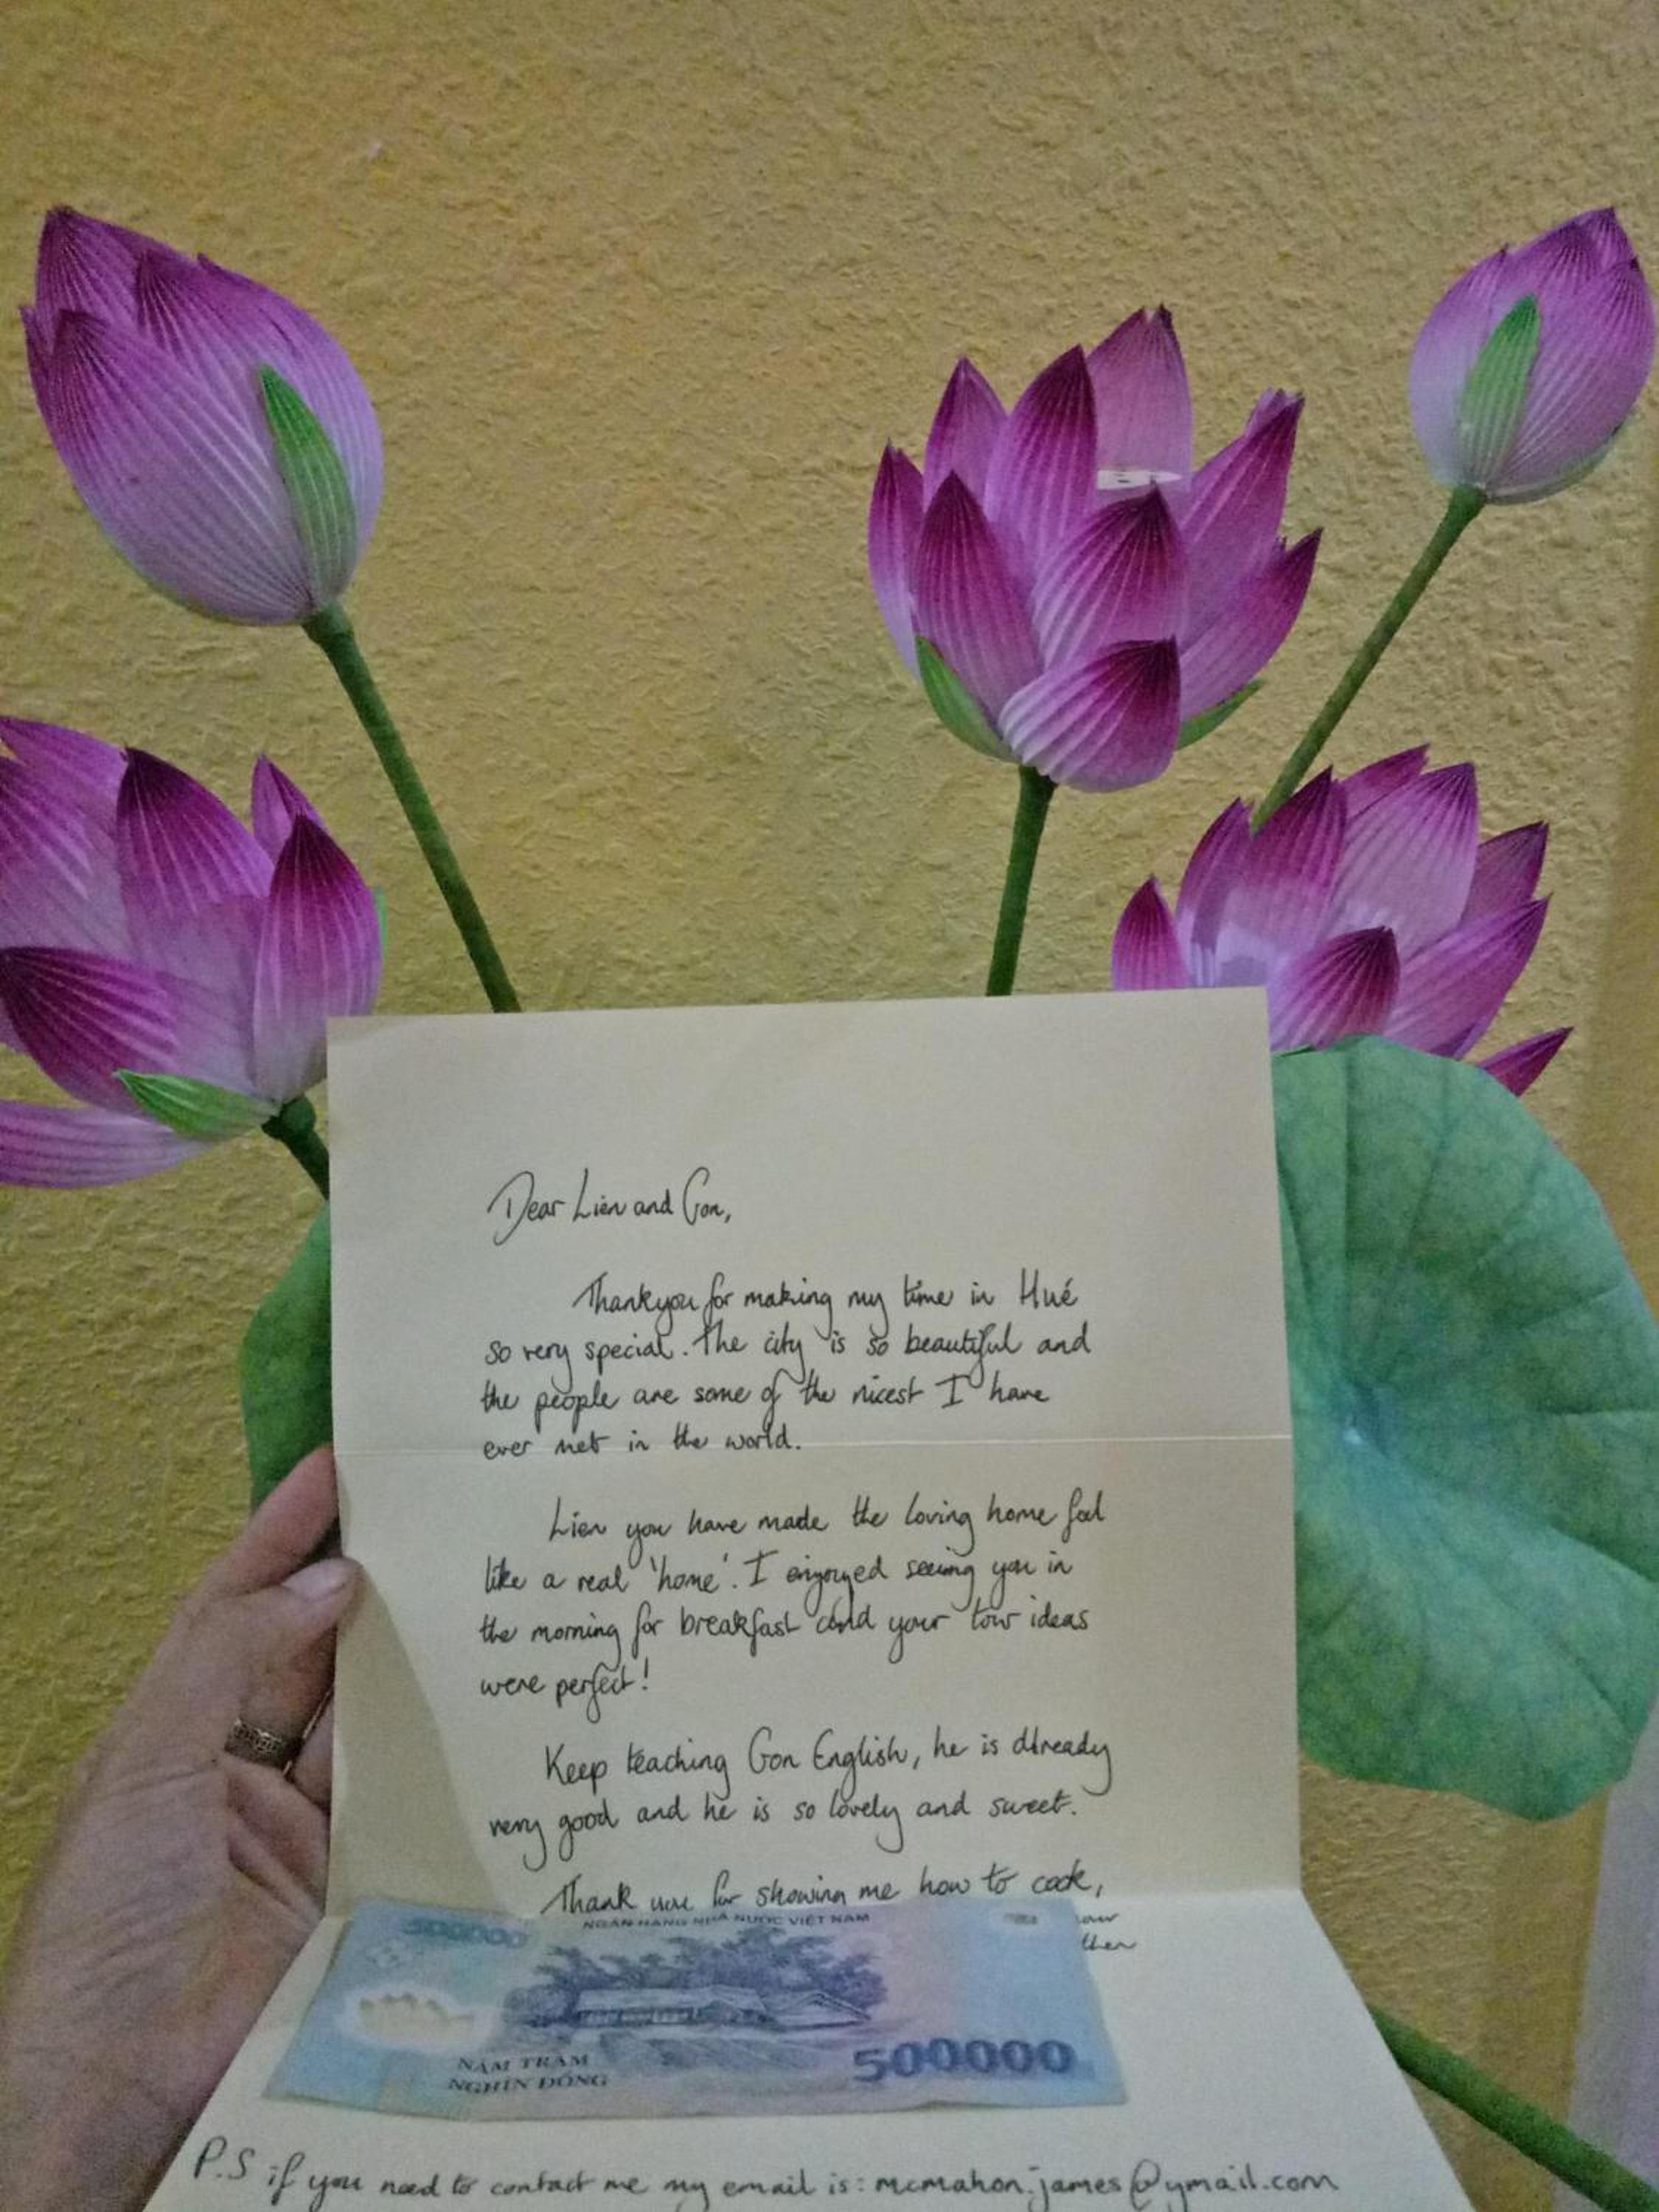 Dear Lien and Gon,
Thankyou for making my time in Hué
so very special. The city is so beautiful and
the people are some of the nicest I have
ever met in the world.
Lien you have made the loving home feel
like a real 'home'. I enjoyed seeing you in
the morning for breakfast and your tour ideas
were perfect!
Keep teaching Gon English, he is already
very good and he is so lovely and sweet.
Thank you for showing me how to cook,
ther
500000
NGÂN HÀNG NHÀ NƯỚC VIỆT NAM
NĂM TRĂM
NGHÌN ĐỒNG
500000
P.S if you need to contact me my email is: mcmahon.james@ymail.com